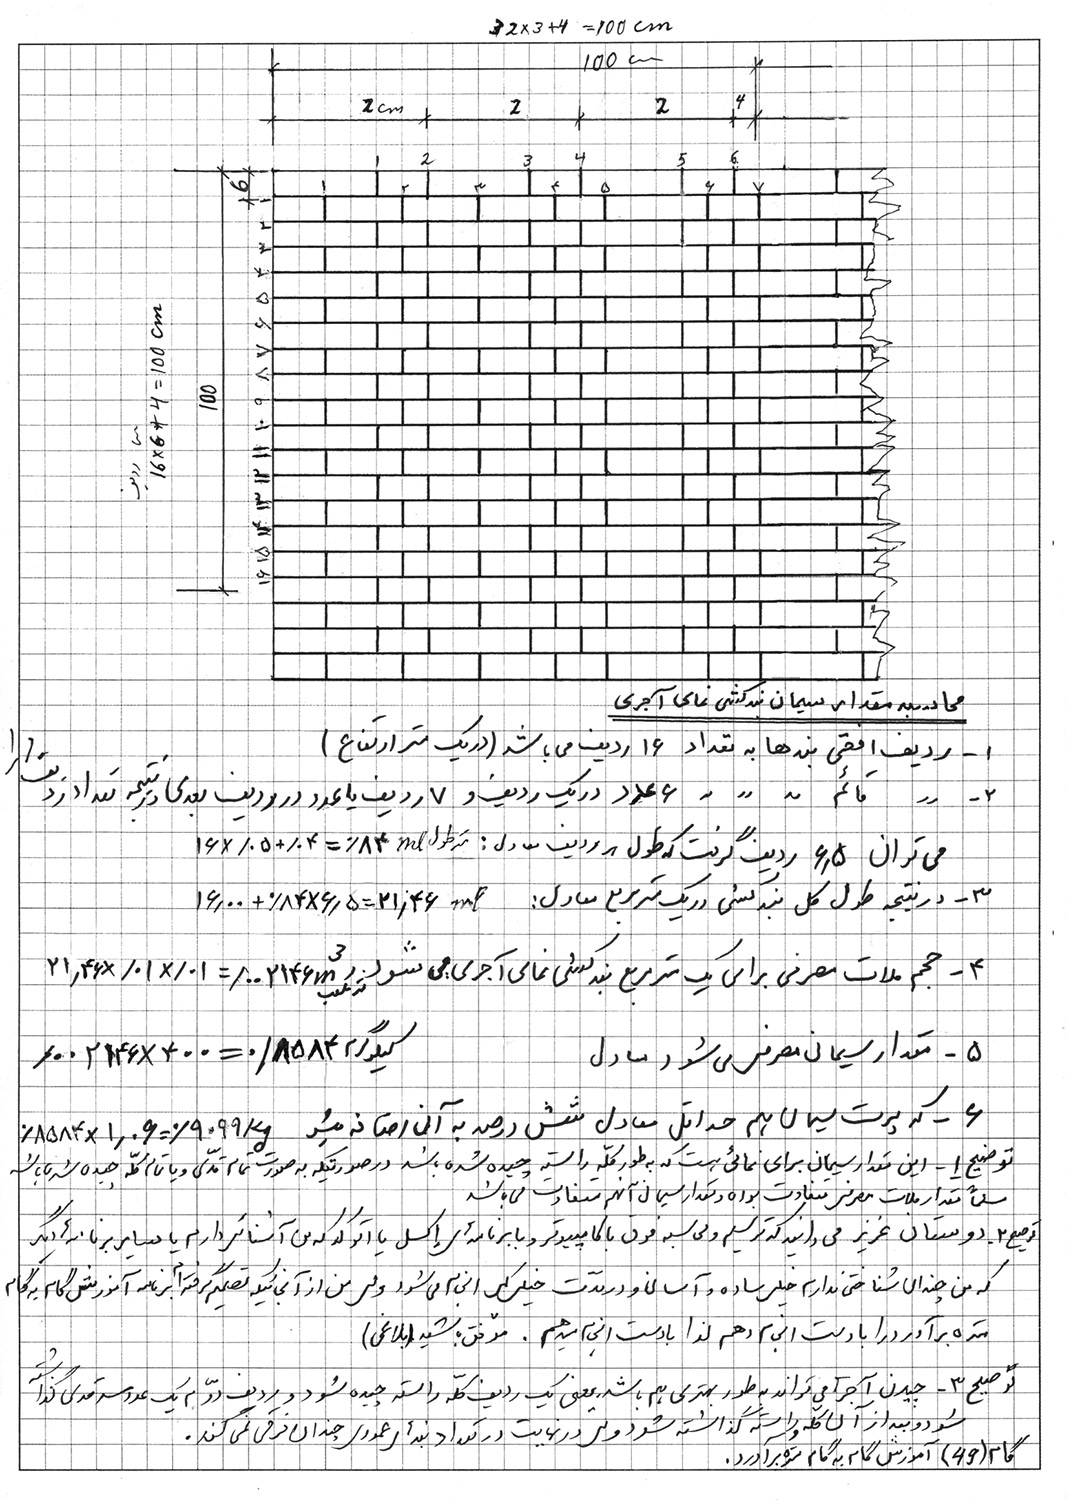 32×3+4 =100 cm
100 cm
2 cm 2 2 4
1 2 3 4 5 6
6
۱ ۲ ۳ ۴ ۵ ۶ ۷
۱
۲
۳
۴
۵
۶
۷
۸
۹
۱۰
۱۱
۱۲
۱۳
۱۴
۱۵
۱۶
100
16×6+4=100 cm
ردیف cm
محاسبه مقدار سیمان بندکشی نمای آجری
۱- ردیف افقی بندها به تعداد ۱۶ ردیف می باشد (در یک متر ارتفاع)
۲- 〃 قائم 〃 〃 〃 ۶ عدد در یک ردیف و ۷ ردیف یا عدد در ردیف بعدی در نتیجه تعداد
می توان ۶٫۵ ردیف گرفت که طول هر ردیف معادل : متر طول ml ۱۶×٪۰۵+٪۰۴=٪۸۴
۳- در نتیجه طول کل بندکشی در یک متر مربع معادل: ۱۶٫۰۰+٪۸۴×۶٫۵=۲۱٫۴۶ ml
۴- حجم ملات مصرفی برای یک متر مربع بندکشی نمای آجری می شود ۲۱٫۴۶×٪۰۱×٪۰۱=٪۰۰۲۱۴۶ m3
متر مکعب
۵- مقدار سیمان مصرفی می شود معادل ٪۰۰۲۱۴۶×۴۰۰=۰/۸۵۸۴ کیلوگرم
۶- که پرت سیمان هم حداقل معادل شش درصد به آن اضافه میشود ٪۸۵۸۴×۱٫۰۶=٪۹۰۹۹ kg
توضیح ۱- این مقدار سیمان برای نمائی است که به طور کلّه راسته چیده شده باشد در صورتیکه به صورت تمام قدّی و یا تمام کلّه چیده شده باشد
مسلماً مقدار ملات مصرفی متفاوت بوده و مقدار سیمان آنهم متفاوت می باشد
توضیح ۲- دوستان عزیز می دانید که ترسیم و محاسبه فوق با کامپیوتر و با برنامه‌ای اکسل یا اتوکد که من آشنائی دارم یا سایر برنامه‌های دیگر
که من چندان شناختی ندارم خیلی ساده و آسان و در مدّت خیلی کم انجام می شود ولی من از آنجائیکه تصمیم گرفته‌ام برنامه آموزش گام به گام
متره برآورد را با دست انجام دهم لذا با دست انجام میدهم . موّفق باشید (بلاغی)
توضیح ۳- چیدن آجرها می تواند به طور بهتری هم باشد یعنی یک ردیف کلّه راسته چیده شود و ردیف دوّم یک عدد سه قدی گذاشته
شود و بعد از آن کلّه راسته گذاشته شود ولی در نهایت در تعداد بندهای عمودی چندان فرقی نمی کند .
گام (49) آموزش گام به گام متره برآورد .